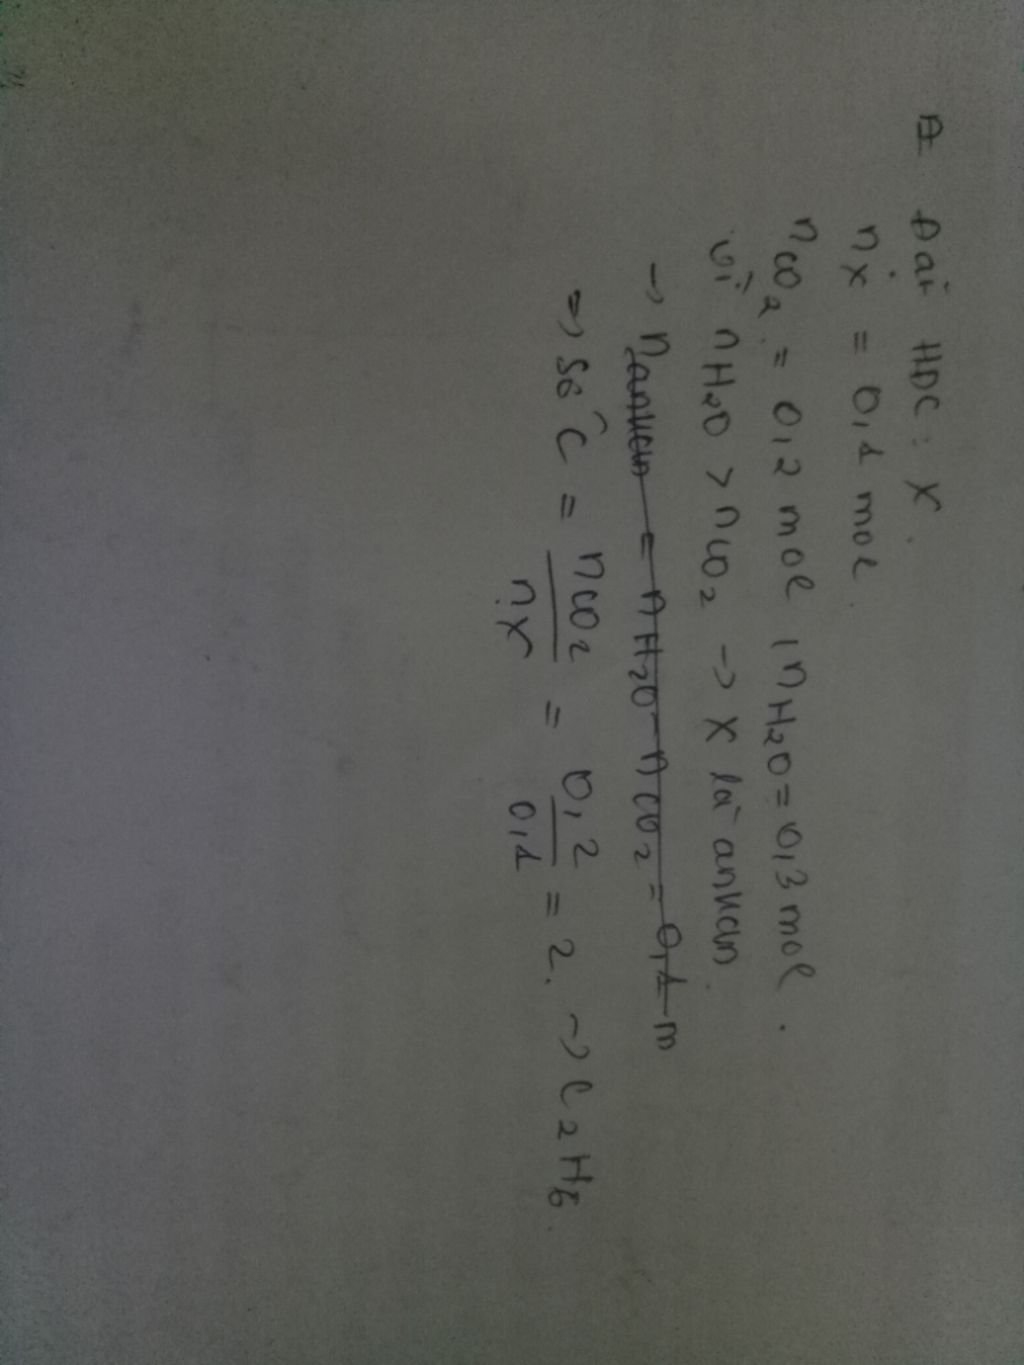 A Đặt HDC: X.
nX = 0,1 mol.
nCO2 = 0,2 mol, nH2O = 0,3 mol.
Vì nH2O > nCO2 -> X là ankan
-> nankan = nH2O - nCO2 = 0,1 m
=> Số C = nCO2 / nX = 0,2 / 0,1 = 2. -> C2H6.